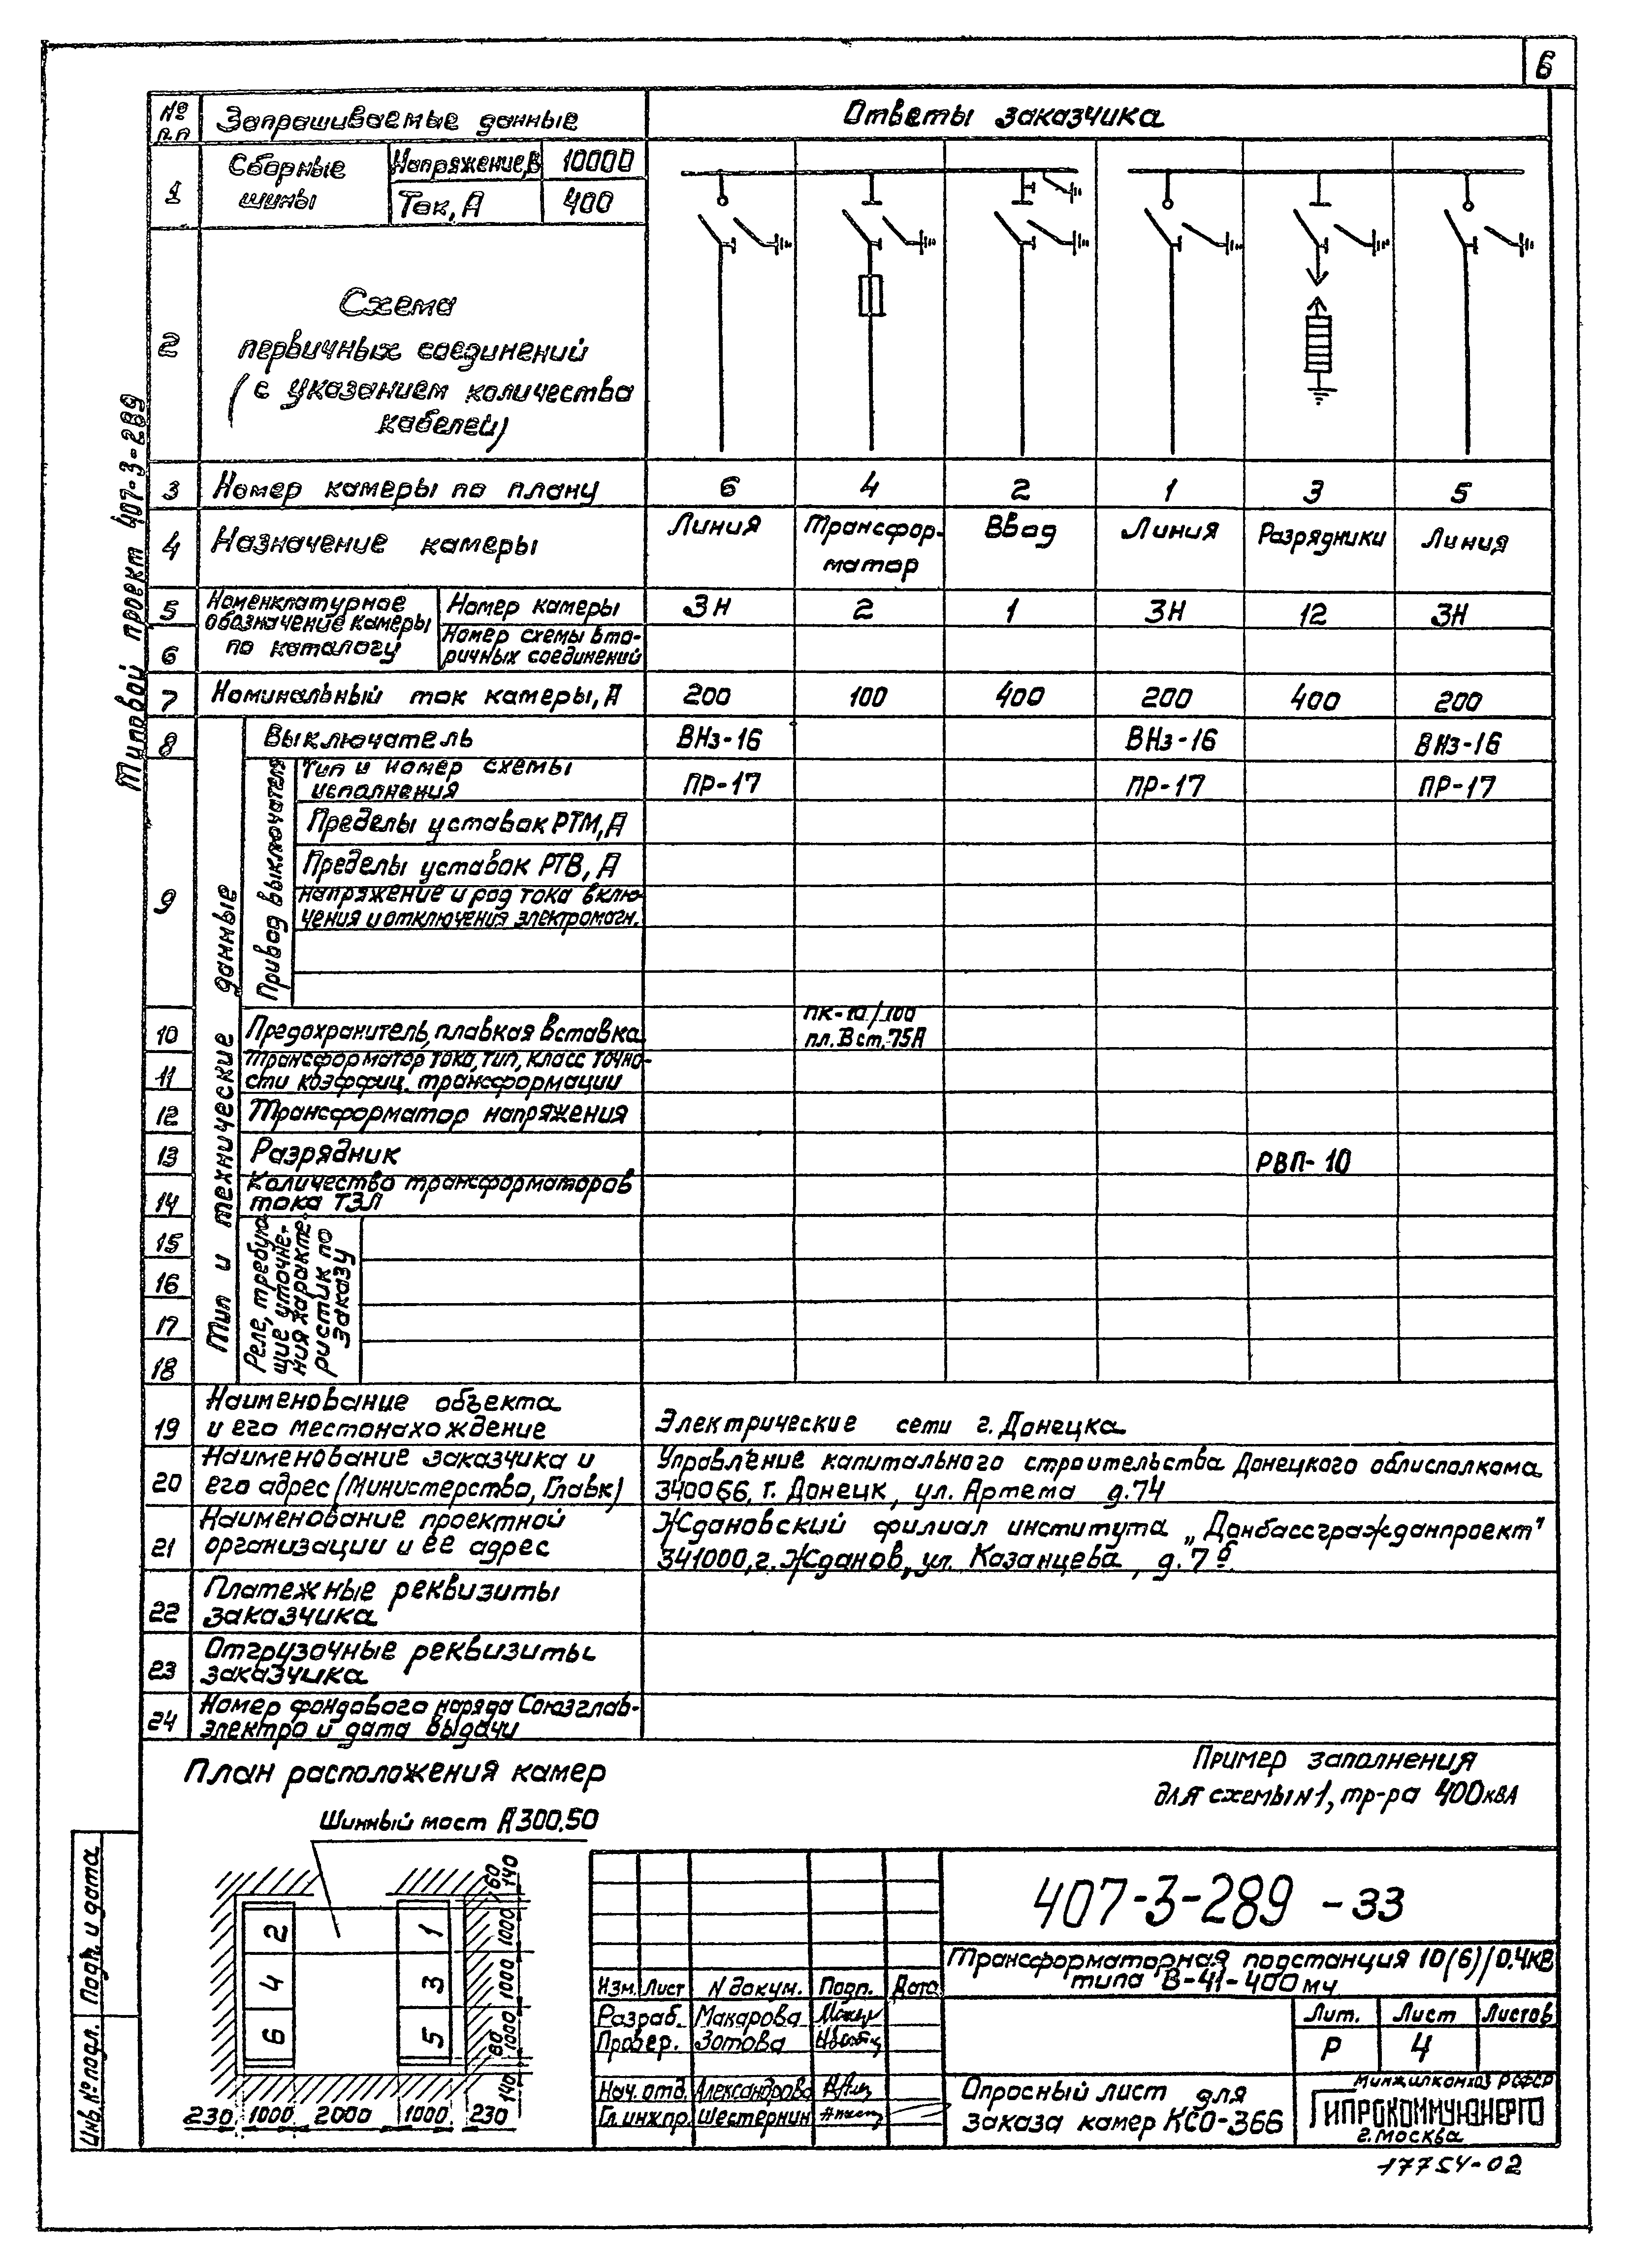 6
№ п.п
Запрашиваемые данные
Ответы заказчика
1
Сборные шины
Напряжение,В
10000
Ток, А
400
2
Схема
первичных соединений
(с указанием количества
кабелей)
3 Номер камеры по плану 6 4 2 1 3 5
4 Назначение камеры Линия Трансфор- Ввод Линия Разрядники Линия
матор
5 Номенклатурное обозначение камеры по каталогу
Номер камеры 3Н 2 1 3Н 12 3Н
6 Номер схемы вто-
ричных соединений
7 Номинальный ток камеры, А 200 100 400 200 400 200
Тип и технические данные
8 Выключатель ВНз-16 ВНз-16 ВНз-16
9 Привод выключателя
Тип и номер схемы
исполнения ПР-17 ПР-17 ПР-17
Пределы уставок РТМ, А
Пределы уставок РТВ, А
Напряжение и род тока вклю-
чения и отключения электромагн.
10 Предохранитель, плавкая вставка
ПК-10/100
пл. Вст. 75А
11 Трансформатор тока, тип, класс точно-
сти коэффиц. трансформации
12 Трансформатор напряжения
13 Разрядник РВП-10
14 Количество трансформаторов
тока ТЗЛ
15
16
17
18
Реле, требую
щие уточне-
ния характе-
ристик по
заказу
19 Наименование объекта
и его местонахождение
Электрические сети г. Донецка
20 Наименование заказчика и
его адрес (Министерство, Главк)
Управление капитального строительства Донецкого облисполкома
340066, г. Донецк, ул. Артема д.74
21 Наименование проектной
организации и ее адрес
Ждановский филиал института „Донбассгражданпроект"
341000, г. Жданов, ул. Казанцева, д. 7б
22 Платежные реквизиты
заказчика
23 Отгрузочные реквизиты
заказчика
24 Номер фондового наряда Союзглав-
электро и дата выдачи
План расположения камер
Шинный мост А300.50
2 1
4 3
6 5
60 140
1000
1000
1000
80
140
230 1000 2000 1000 230
Пример заполнения
для схемы №1, тр-ра 400кВА
407-3-289 -ЭЗ
Трансформаторная подстанция 10(6)/0.4кВ
типа В-41-400мч
Изм. Лист N докум. Подп. Дата
Разраб. Макарова
Провер. Зотова
Нач. отд. Александрова
Гл.инж.пр. Шестернин
Лит. Лист Листов
Р 4
Опросный лист для
заказа камер КСО-366
Минжилкомхоз РСФСР
ГИПРОКОММУНЭНЕРГО
г. Москва
17754-02
Типовой проект 407-3-289
Инв. № подл. Подп. и дата